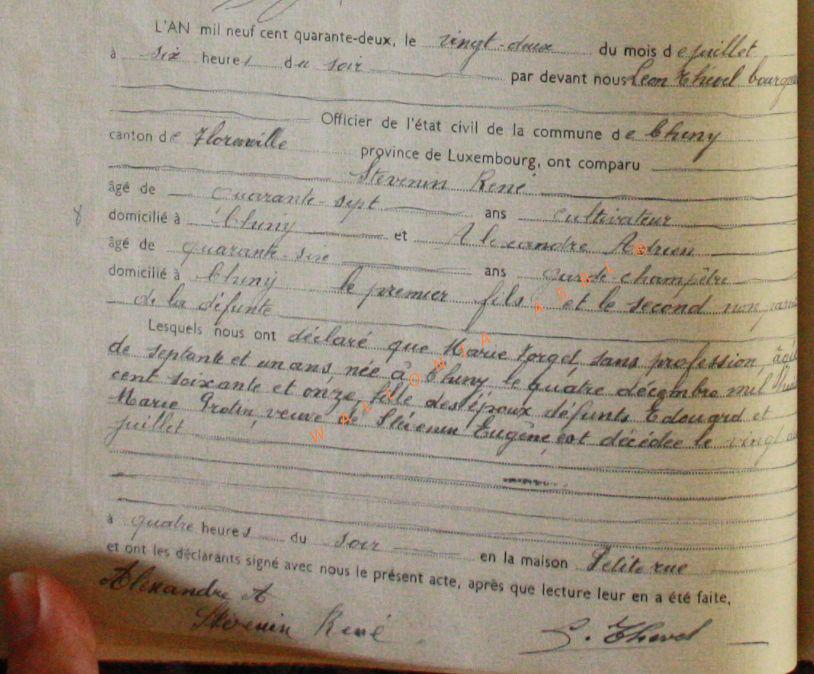 L'AN mil neuf cent quarante-deux, le vingt-deux du mois de juillet
à six heures du soir par devant nous Léon Thével
Officier de l'état civil de la commune de Chiny
canton de Florenville province de Luxembourg, ont comparu
Stevenin René
âgé de quarante-sept ans cultivateur
domicilié à Chiny et Alexandre Adrien
âgé de quarante-six ans garde-champêtre
domicilié à Chiny le premier fils et le second non
de la défunte
Lesquels nous ont déclaré que Marie Forget, sans profession,
de septante et un ans, née à Chiny le quatre décembre mil
cent soixante et onze, fille des époux défunts Edouard et
Marie veuve de Stévenin Eugène, est décédée le vingt
juillet
8
à quatre heures du soir en la maison Petite rue
et ont les déclarants signé avec nous le présent acte, après que lecture leur en a été faite,
Alexandre A
Stévenin René